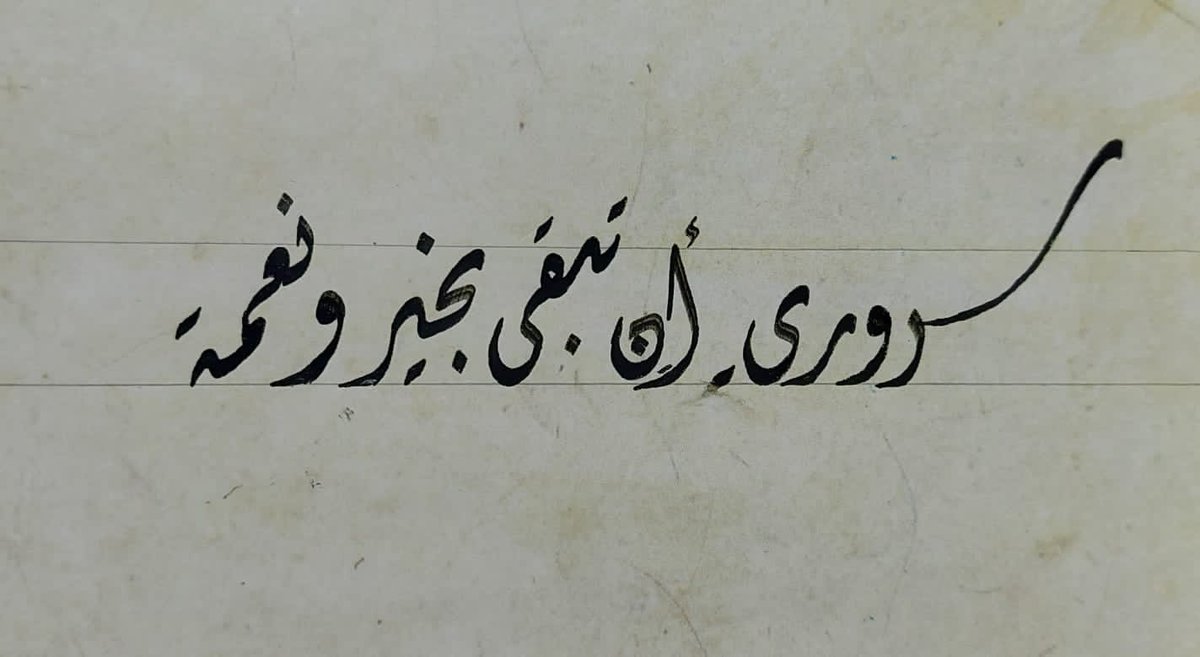 سروري أن تبقى بخير ونعمة